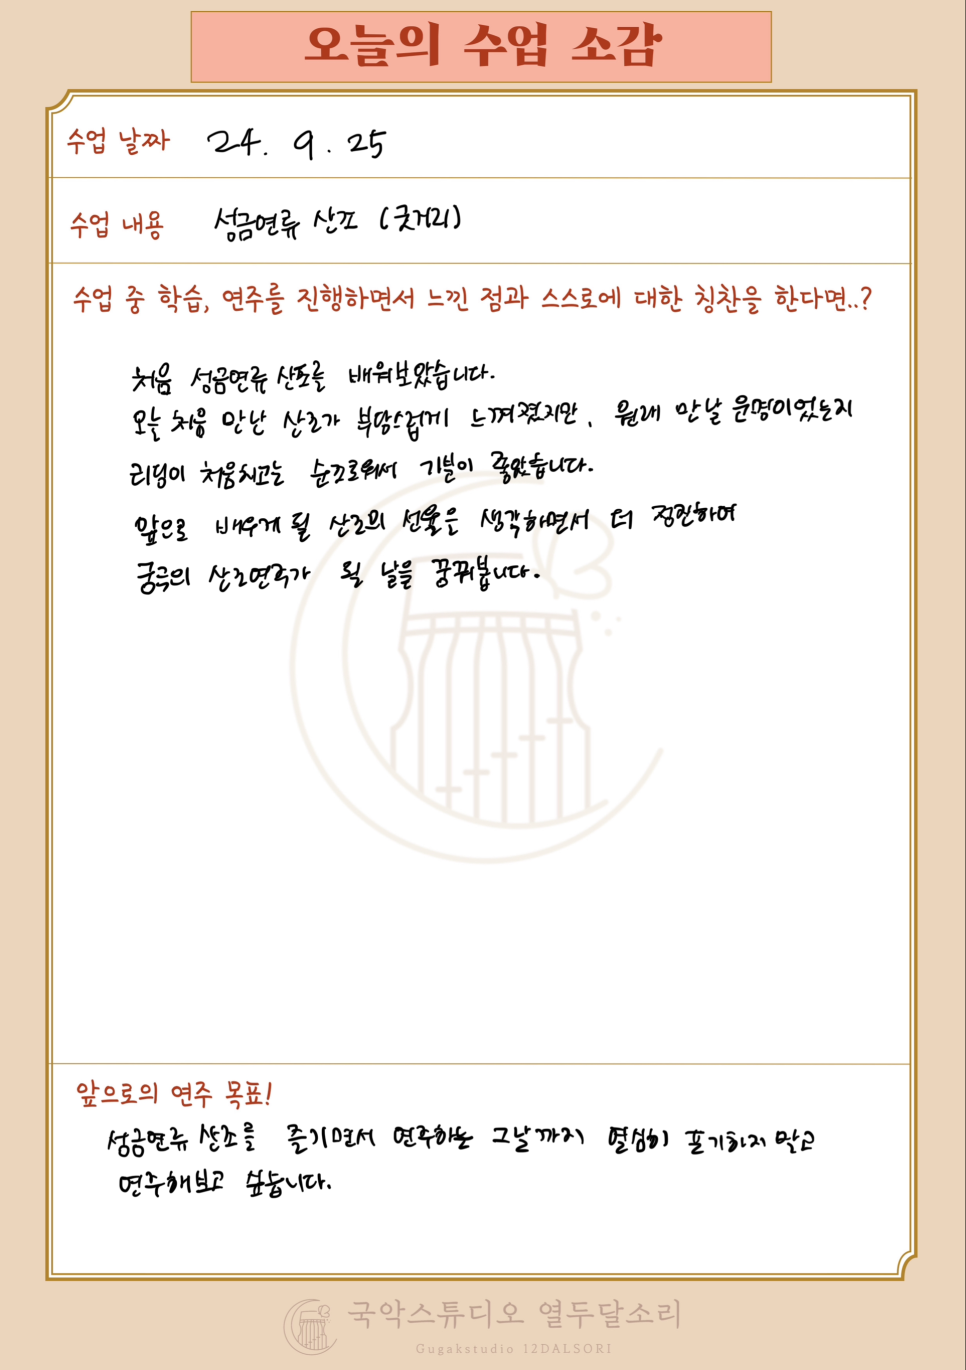 오늘의 수업 소감
수업 날짜 24. 9. 25
수업 내용 성금연류 산조 (굿거리)
수업 중 학습, 연주를 진행하면서 느낀 점과 스스로에 대한 칭찬을 한다면..?
처음 성금연류 산조를 배워보았습니다.
오늘 처음 만난 산조가 부담스럽게 느껴졌지만, 원래 만날 운명이었는지
리딩이 처음치고는 순조로워서 기분이 좋았습니다.
앞으로 배우게 될 산조의 선율은 생각하면서 더 정진하여
궁극의 산조연주가 될 날을 꿈꿔봅니다.
앞으로의 연주 목표!
성금연류 산조를 즐기면서 연주하는 그날까지 열심히 포기하지 말고
연주해보고 싶습니다.
국악스튜디오 열두달소리
Gugakstudio 12DALSORI